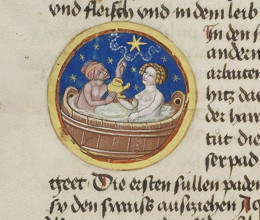 vnd fleisch vnd in dem leib
In den f
andern
arbaten
hitz das
der han
tüt die
ser pad
geet Die ersten sullen paden
den swaiss ausziehen